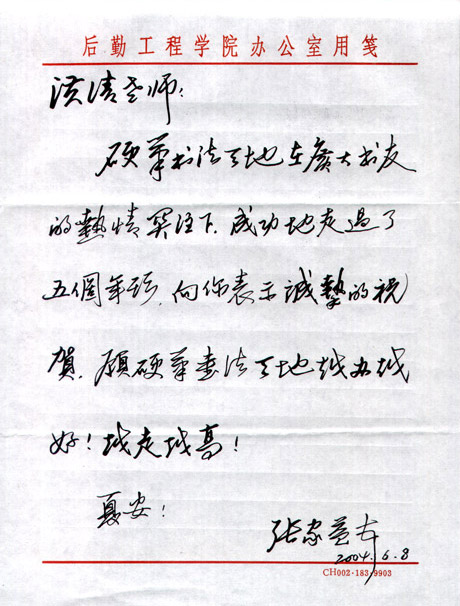 后勤工程学院办公室用笺
洪清老师:
硬笔书法天地在廣大书友
的热情関注下,成功地走過了
五個年頭,向你表示誠摯的祝
賀,願硬笔書法天地越办越
好!越走越高!
夏安!
张家益
2004.6.8
CH002-183-9903